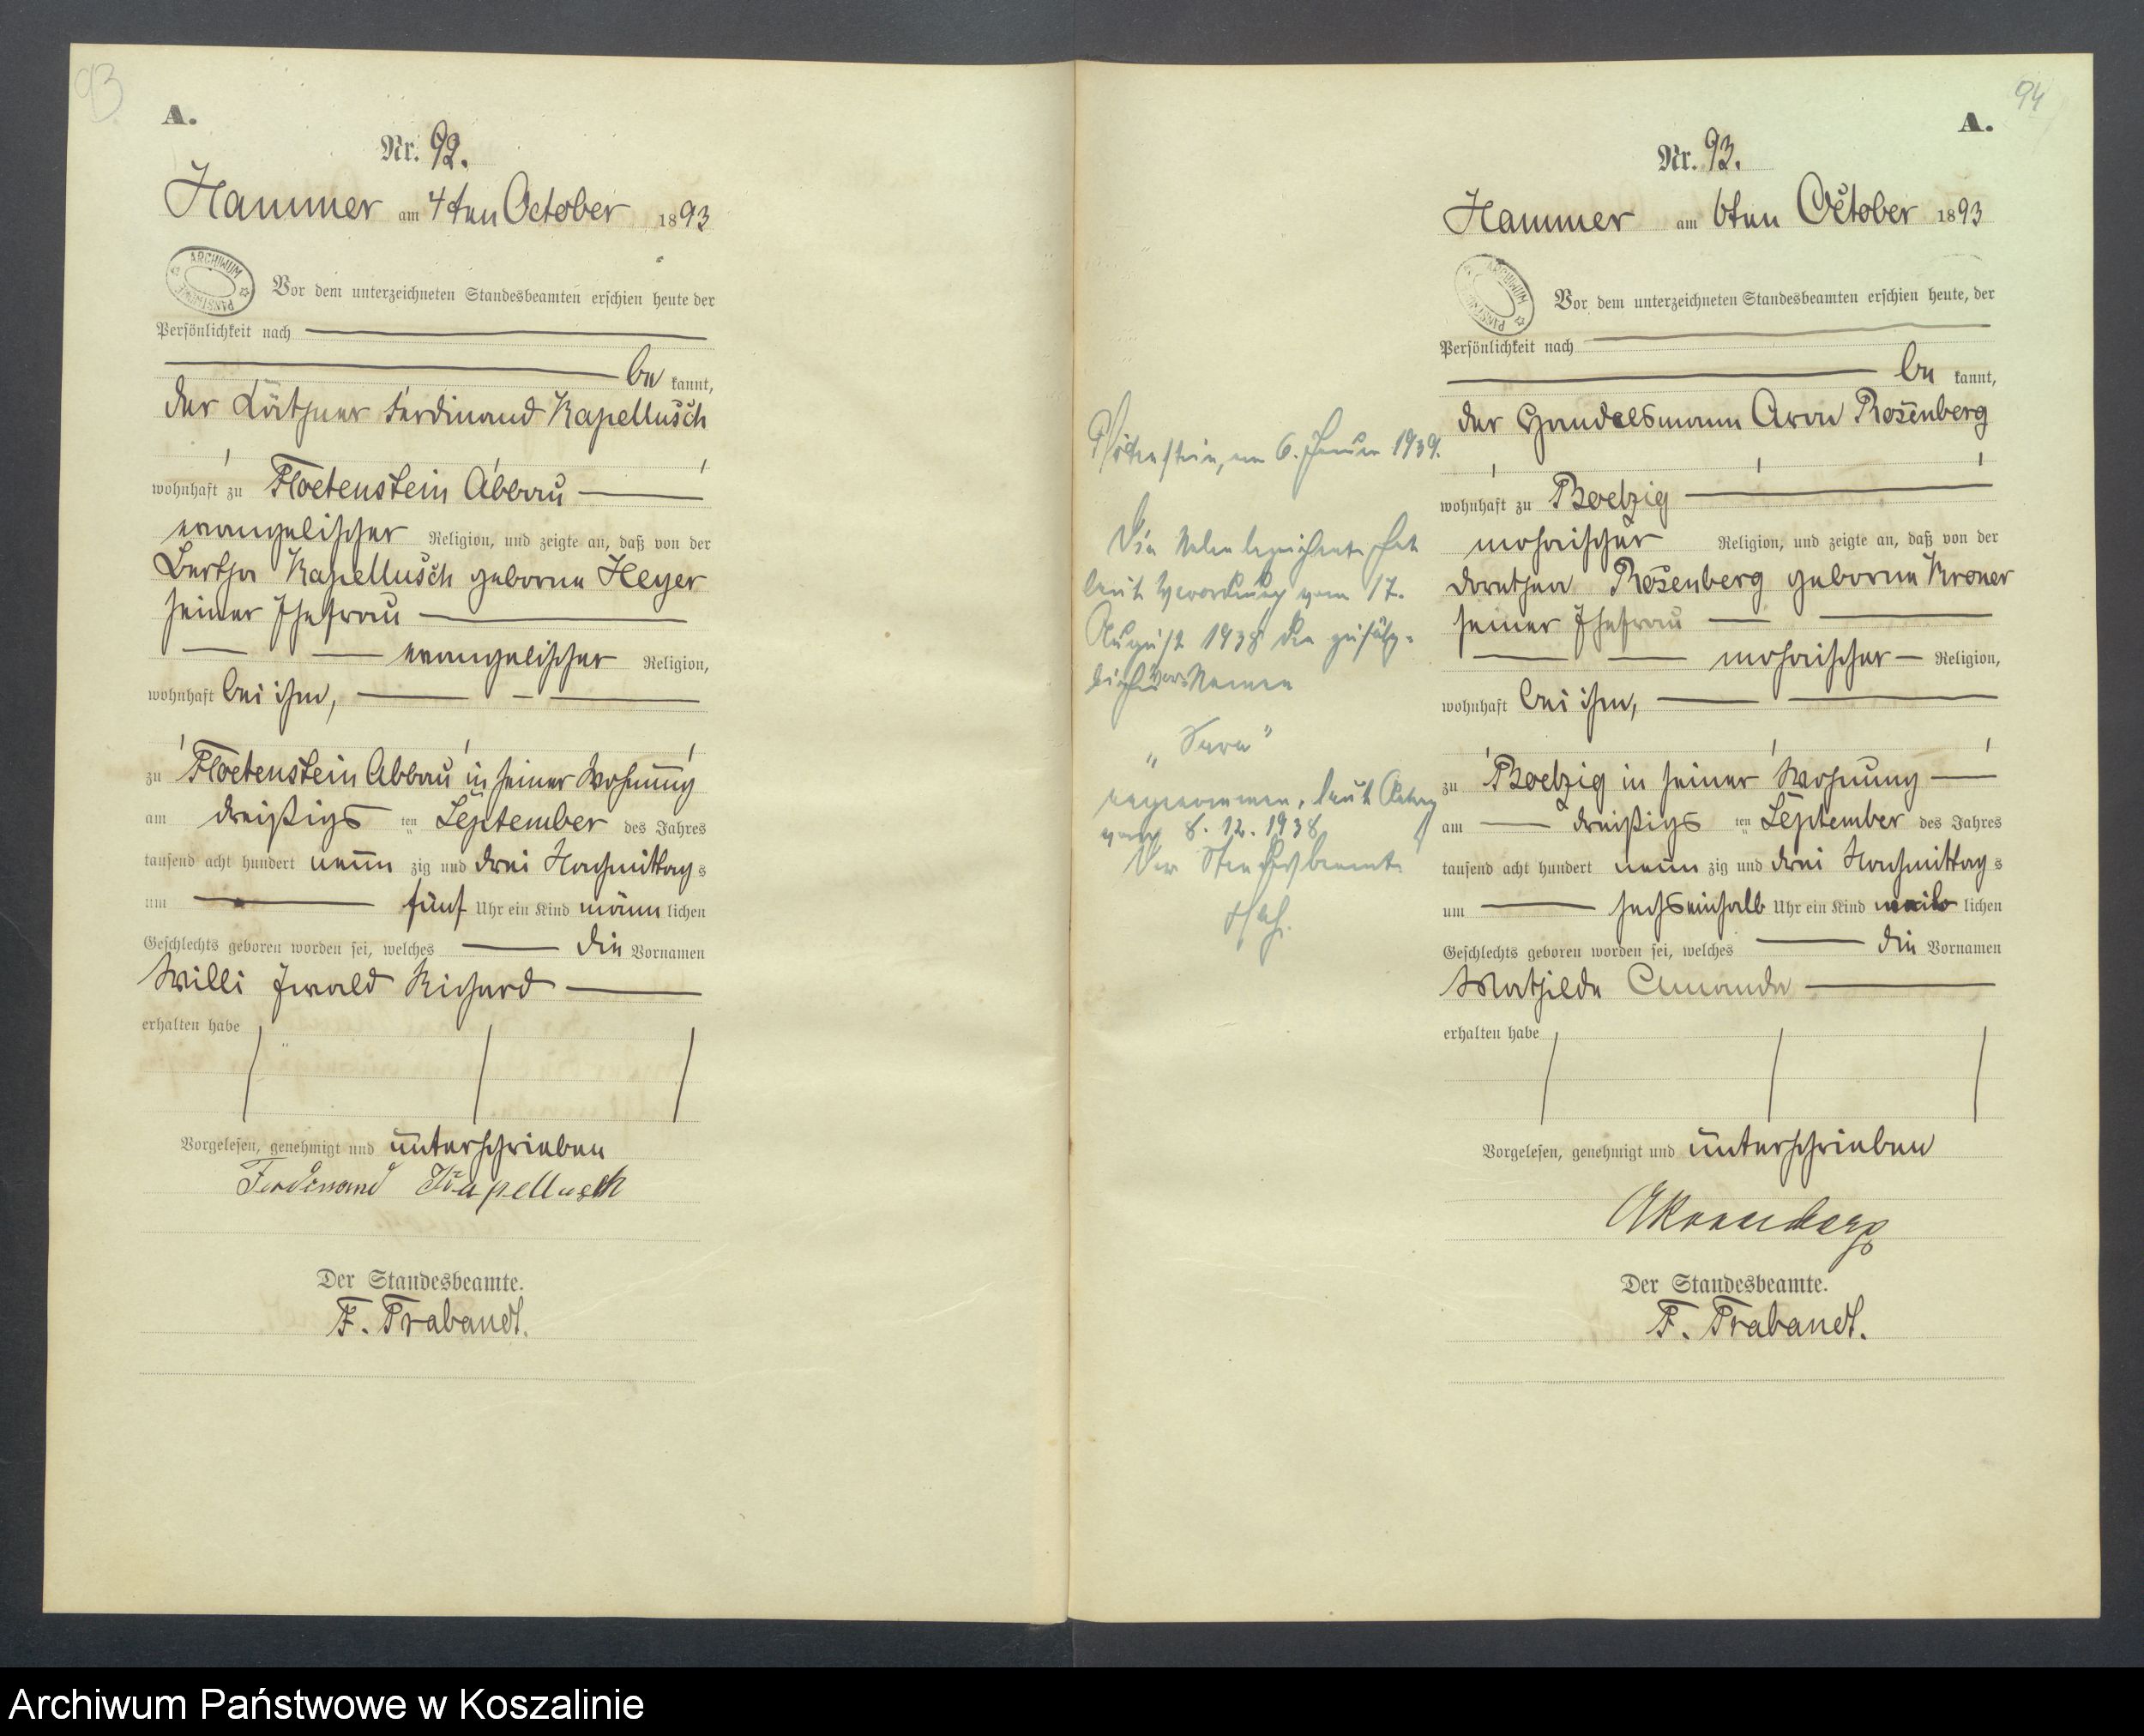 93
A.
Nr. 92.
Hammer am 4ten October 1893
ARCHIWUM PAŃSTWOWE
Vor dem unterzeichneten Standesbeamten erschien heute der
Persönlichkeit nach
be kannt,
der Käthner Ferdinand Kapellusch
wohnhaft zu Floetenstein Abbau
evangelischer Religion, und zeigte an, daß von der
Bertha Kapellusch geborne Heyer
seiner Ehefrau
evangelischer Religion,
wohnhaft bei ihm,
zu Floetenstein Abbau in seiner Wohnung
am dreißigs ten September des Jahres
tausend acht hundert neun zig und drei Nachmittag s
um fünf Uhr ein Kind männ lichen
Geschlechts geboren worden sei, welches die Vornamen
Willi Ewald Richard
erhalten habe
Vorgelesen, genehmigt und unterschrieben
Ferdinand Kapellusch
Der Standesbeamte.
F. Prabandt.
94
A.
Nr. 93.
Hammer am 6ten October 1893
ARCHIWUM PAŃSTWOWE
Vor dem unterzeichneten Standesbeamten erschien heute, der
Persönlichkeit nach
be kannt,
der Handelsmann Aron Rosenberg
wohnhaft zu Boelzig
mosaischer Religion, und zeigte an, daß von der
Dorethea Rosenberg geborne Kroner
seiner Ehefrau
mosaischer Religion,
wohnhaft bei ihm,
zu Boelzig in seiner Wohnung
am dreißigs ten September des Jahres
tausend acht hundert neun zig und drei Nachmittag s
um sechseinhalb Uhr ein Kind weib lichen
Geschlechts geboren worden sei, welches die Vornamen
Mathilde Amanda
erhalten habe
Vorgelesen, genehmigt und unterschrieben
ARosenberg
Der Standesbeamte.
F. Prabandt.
Flötenstein, am 6. Januar 1939.
Die Nebenbezeichnete hat
laut Verordnung vom 17.
August 1938 den zusätz-
lichen Vor-Namen
„Sara"
angenommen, laut Antrag
vom 8. 12. 1938
Der Standesbeamte
Archiwum Państwowe w Koszalinie